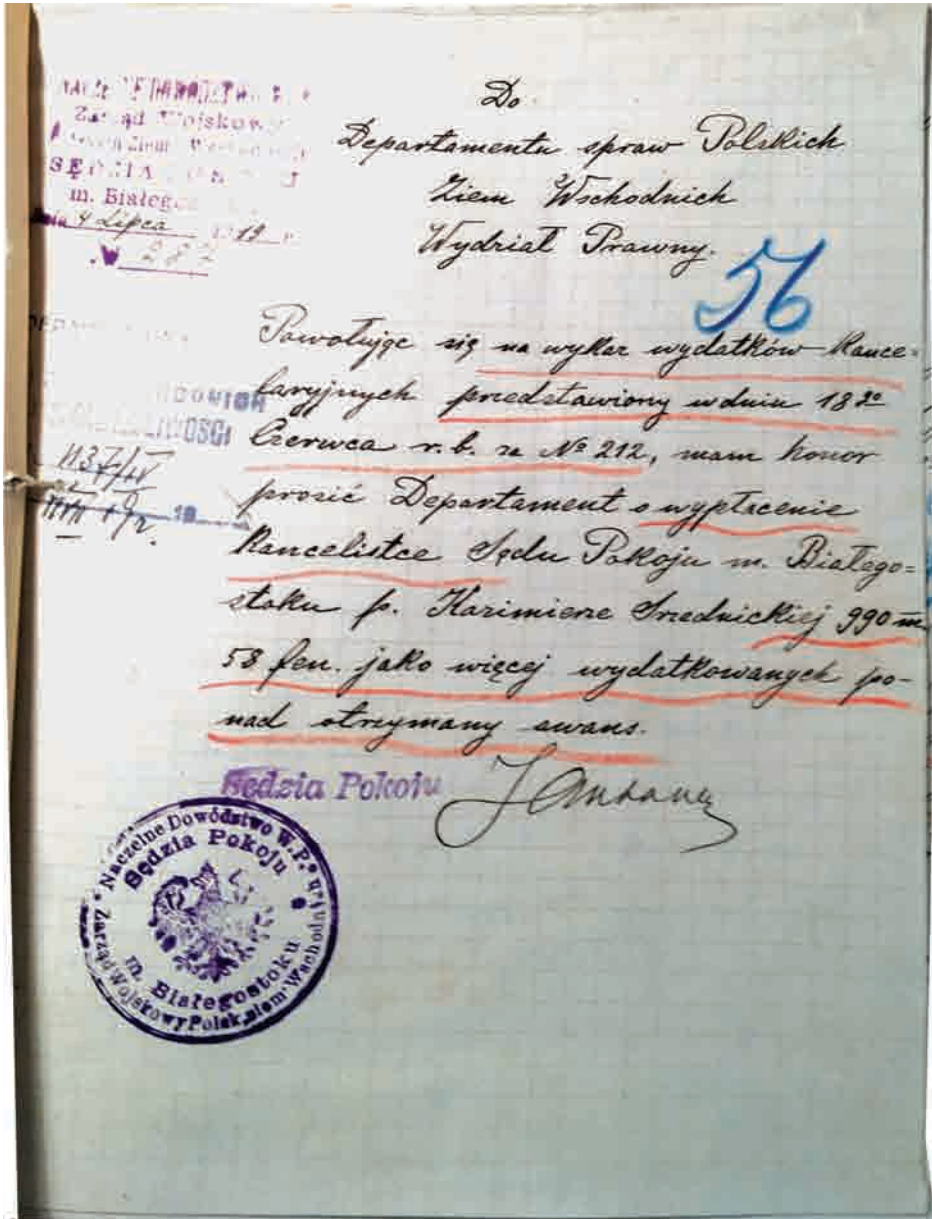 Zarząd Wojskowy
m. Białegos
dnia 4 Lipca 1919 r.
№ 282
Do
Departamentu spraw Polskich
Ziem Wschodnich
Wydział Prawny.
56
Powołując się na wykaz wydatków Kance=
laryjnych przedstawiony w dniu 18 go
Czerwca r.b. za № 212, mam honor
prosić Departament o wypłacenie
Kancelistce Sądu Pokoju m. Białego=
stoku p. Kazimierze Średnickiej 990 m.
58 fen. jako więcej wydatkowanych po-
nad otrzymany awans.
Sędzia Pokoju
Naczelne Dowództwo W.P.
Sędzia Pokoju
m. Białegostoku
Zarząd Wojskowy Polsk. ziem Wschodnich